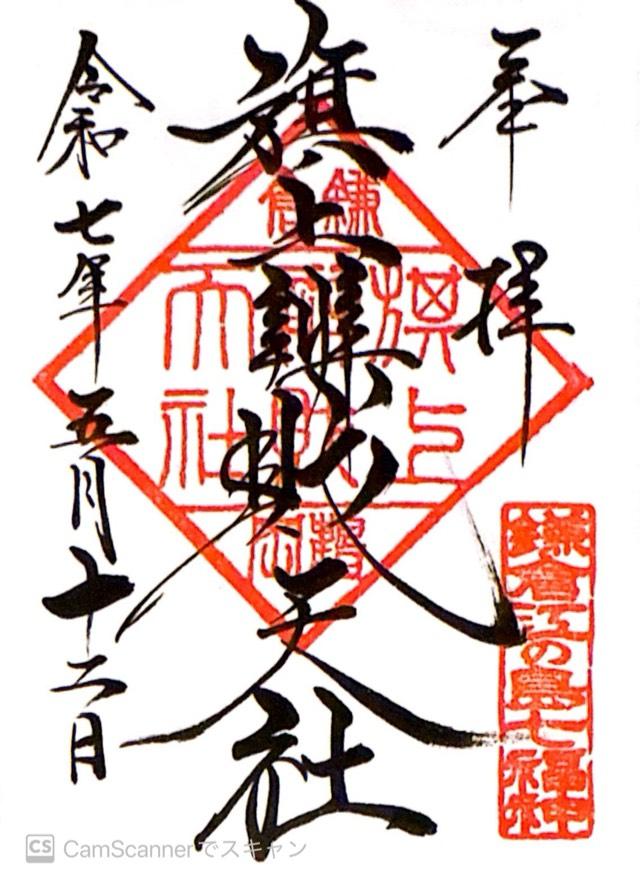 奉拝
鎌倉江の島七福神
旗上辨財天社
鎌倉
旗上
辨財
天社
令和七年五月十二日
CS CamScannerでスキャン